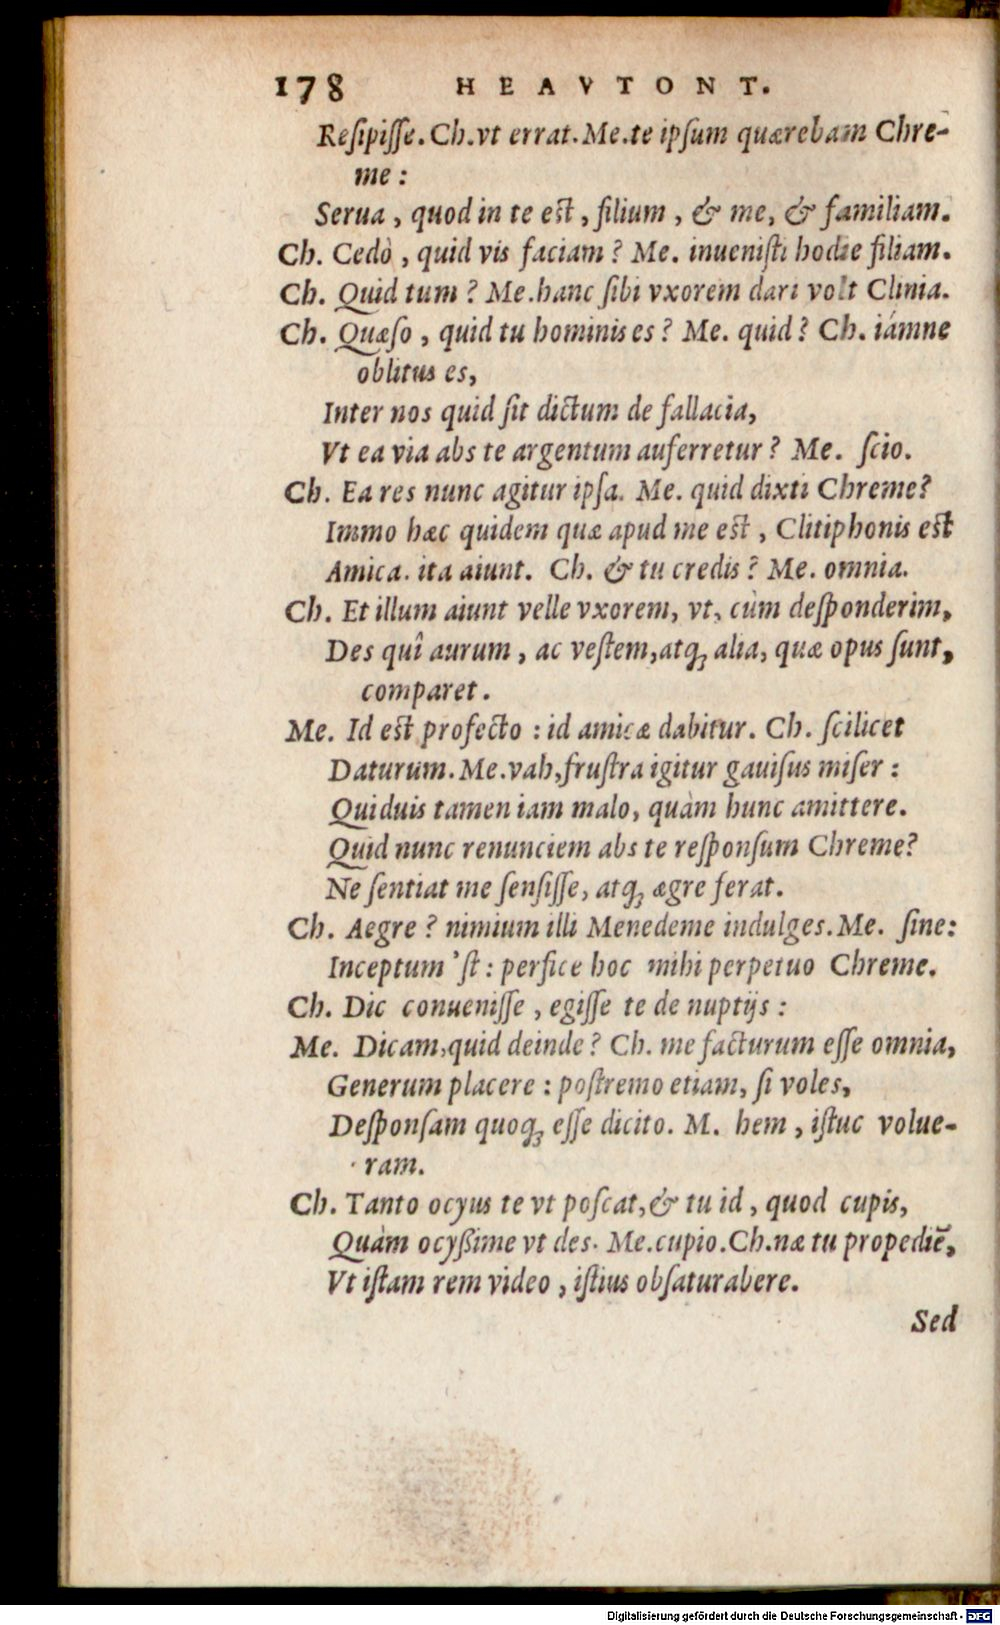 178 HEAVTONT.
Resipisse. Ch. vt errat. Me. te ipsum quærebam Chre-
me :
Serua , quod in te est , filium , & me, & familiam.
Ch. Cedò , quid vis faciam ? Me. inuenisti hodie filiam.
Ch. Quid tum ? Me. hanc sibi vxorem dari volt Clinia.
Ch. Quæso , quid tu hominis es ? Me. quid ? Ch. iámne
oblitus es,
Inter nos quid sit dictum de fallacia,
Vt ea via abs te argentum auferretur ? Me. scio.
Ch. Ea res nunc agitur ipsa. Me. quid dixti Chreme?
Immo hæc quidem quæ apud me est , Clitiphonis est
Amica. ita aiunt. Ch. & tu credis ? Me. omnia.
Ch. Et illum aiunt velle vxorem, vt, cùm desponderim,
Des quî aurum , ac vestem, atq; alia, quæ opus sunt,
comparet .
Me. Id est profecto : id amicæ dabitur. Ch. scilicet
Daturum. Me. vah, frustra igitur gauisus miser :
Quiduis tamen iam malo, quàm hunc amittere.
Quid nunc renunciem abs te responsum Chreme?
Ne sentiat me sensisse, atq; ægre ferat.
Ch. Aegre ? nimium illi Menedeme indulges. Me. sine:
Inceptum 'st : perfice hoc mihi perpetuo Chreme.
Ch. Dic conuenisse , egisse te de nuptijs :
Me. Dicam, quid deinde ? Ch. me facturum esse omnia,
Generum placere : postremo etiam, si voles,
Desponsam quoq; esse dicito. M. hem , istuc volue-
ram.
Ch. Tanto ocyus te vt poscat, & tu id , quod cupis,
Quàm ocyßime vt des. Me. cupio. Ch. næ tu propediẽ,
Vt istam rem video , istius obsaturabere.
Sed
Digitalisierung gefördert durch die Deutsche Forschungsgemeinschaft - DFG